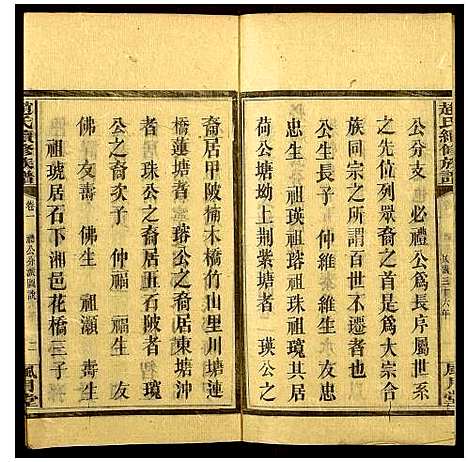 趙氏續修族譜
風月堂
公分支 必禮公爲長房屬世系
之先位列衆裔之首是爲大宗合
族同宗之所謂百世不遷者也
公生長子 仲維生永生 友忠
忠生 祖瑛祖瑢祖珠祖琓其居
荷公塘坳上荆紫塘者 瑛公之
裔居甲陂楠木橋竹山里川塘連
橋蓮塘者瑢公之裔居東塘沖
者居珠公之裔居五石陂者琓
公之裔 次子 仲福 福生 友
佛生 友壽 佛生 祖瀬 壽生
祖琥居石下湘邑花橋三子
趙氏續修族譜
卷一 禮公分派圖說 二
風月堂